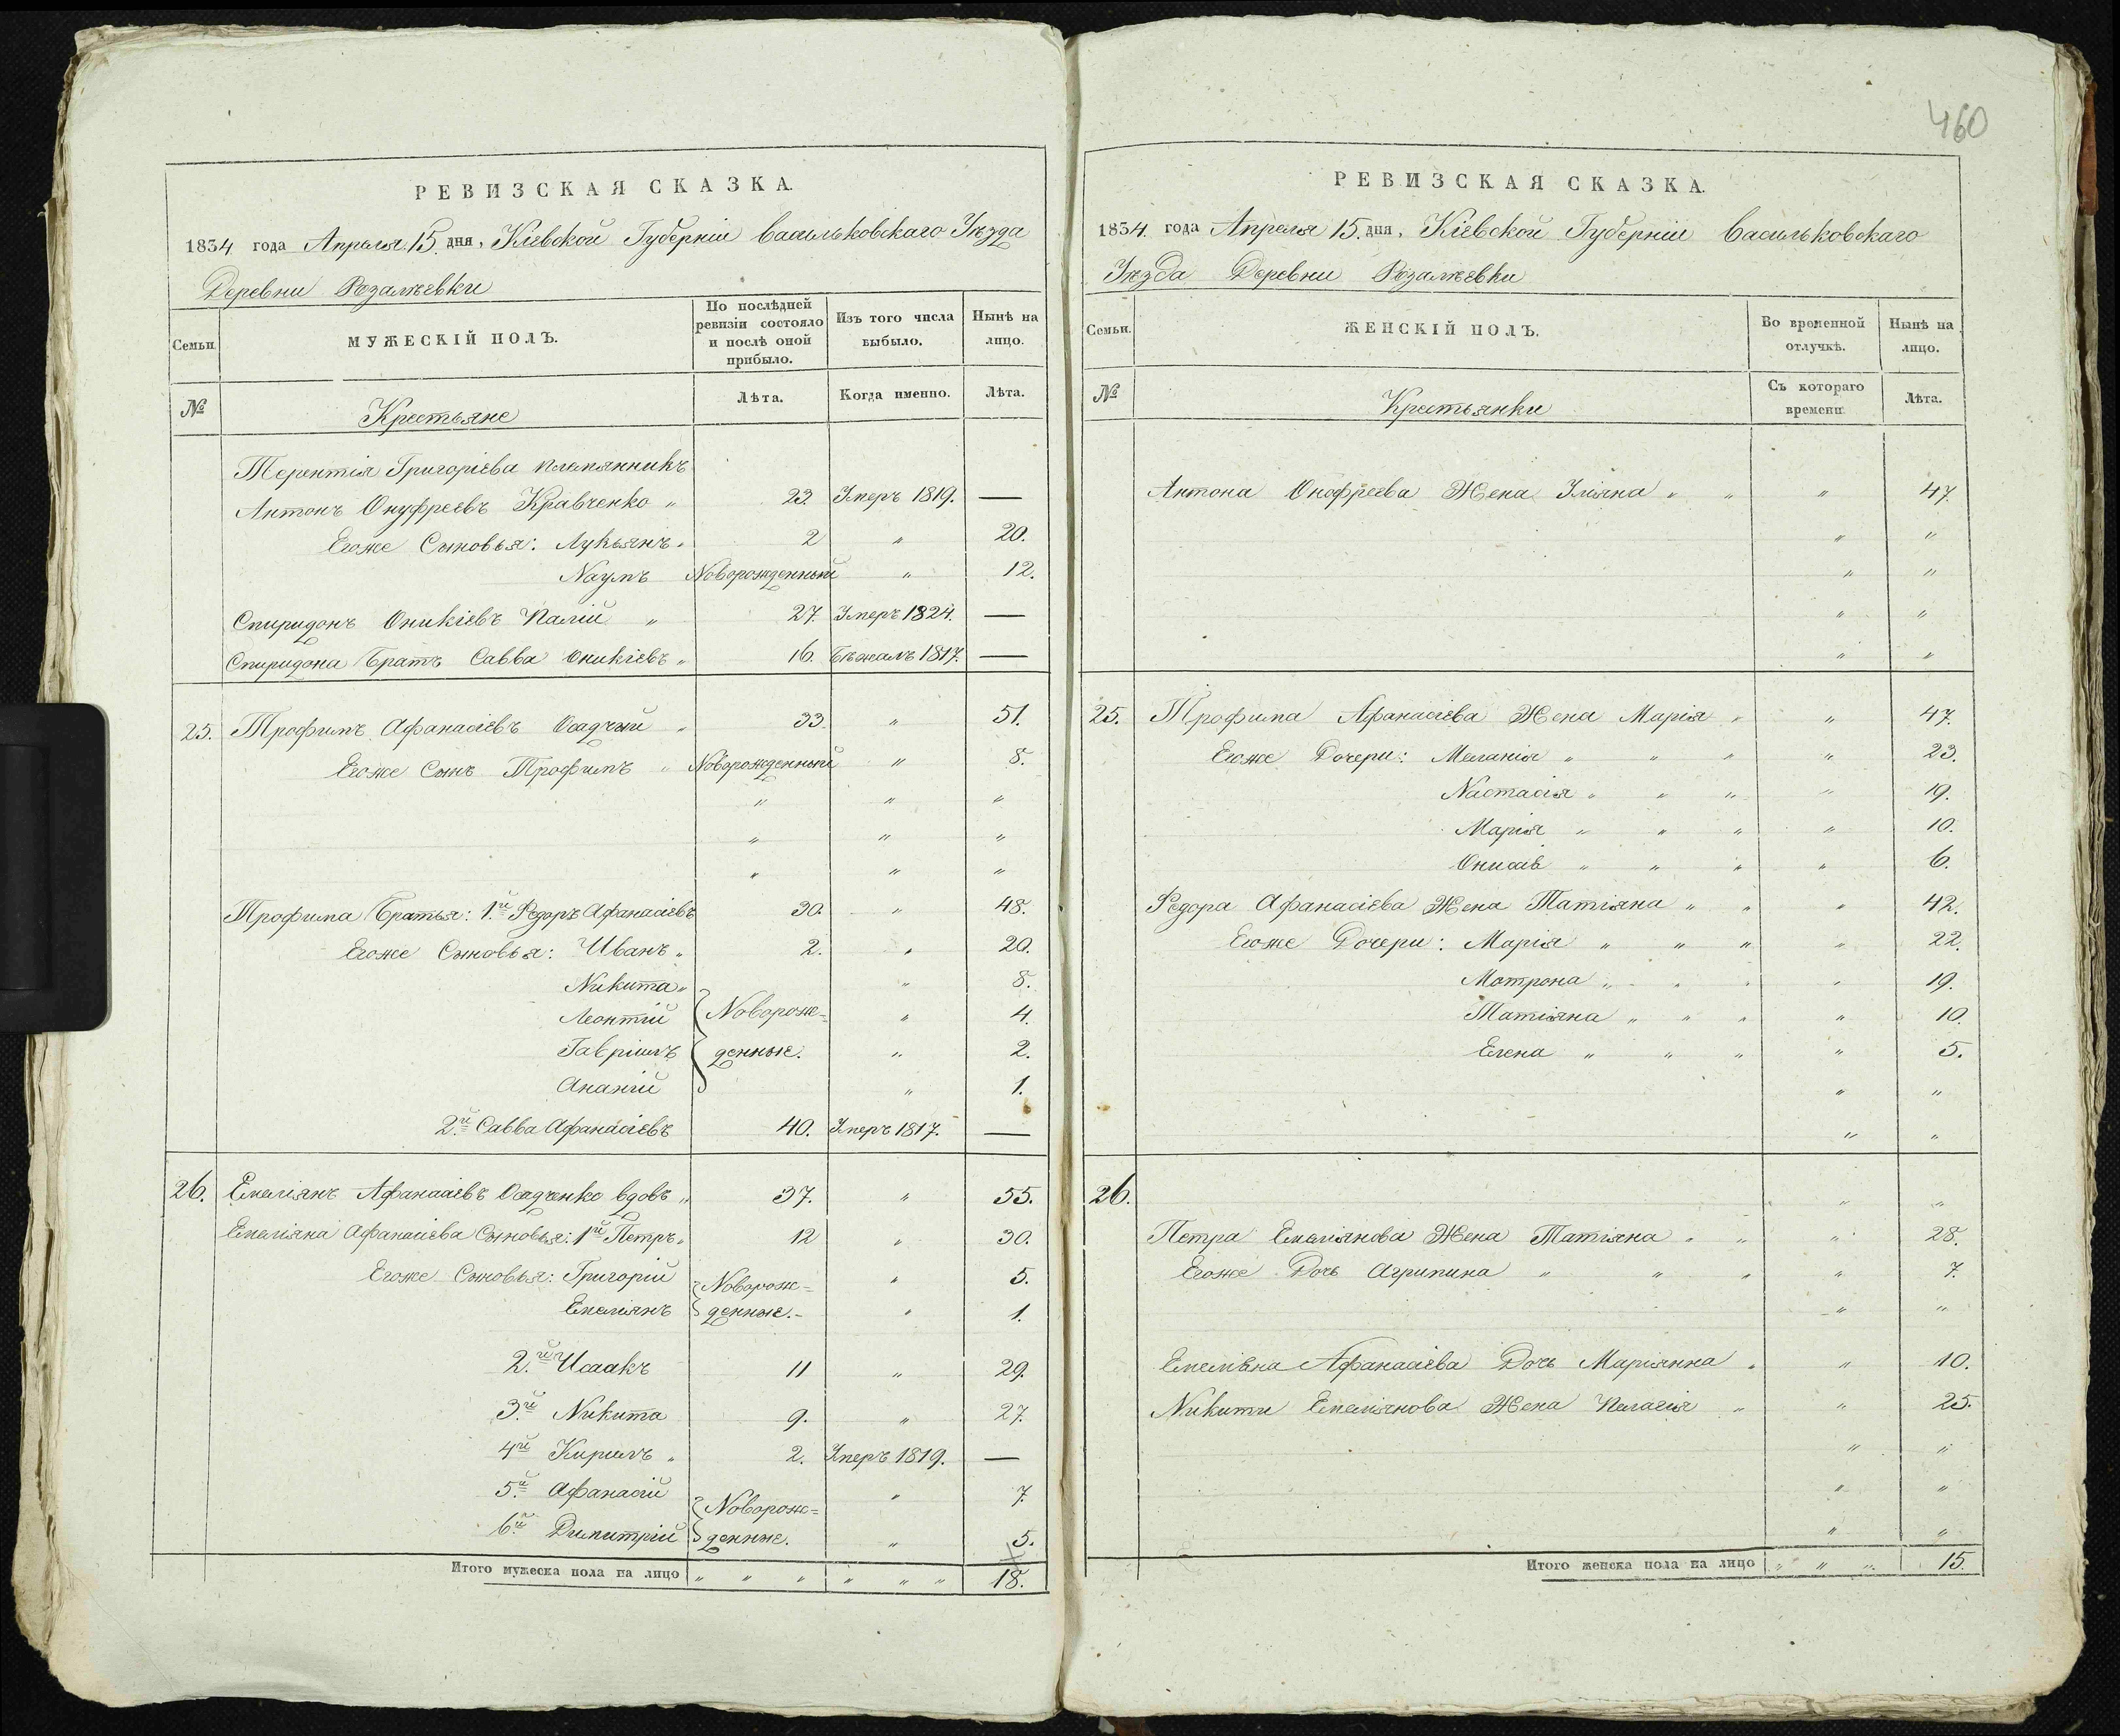 460
РЕВИЗСКАЯ СКАЗКА.
1834 года Апреля 15. дня, Кіевской Губерніи Васильковскаго Уѣзда
Деревни Розалѣевки
Семьи. МУЖЕСКІЙ ПОЛЪ. По послѣдней ревизіи состояло и послѣ оной прибыло. Изъ того числа выбыло. Нынѣ на лицо.
№ Крестьяне Лѣта. Когда именно. Лѣта.
Терентія Григоріева племянникъ
Антонъ Онуфреевъ Кравченко " 23. Умеръ 1819. —
Егоже Сыновья: Лукьянъ " 2 " 20.
Наумъ Новорожденный " 12.
Спиридонъ Оникіевъ Палій " 27. Умеръ 1824. —
Спиридона Братъ Савва Оникіевъ " 16. Бѣжалъ 1817. —
25. Трофимъ Афанасіевъ Осадчый " 33 " 51.
Егоже Сынъ Трофимъ " Новорожденный " 8.
" " "
" " "
" " "
Трофима Братья: 1.й Федоръ Афанасіевъ 30. " 48.
Егоже Сыновья: Иванъ " 2. " 20.
Никита " " 8.
Леонтій Новорож= " 4.
Гавріилъ денные. " 2.
Ананій " 1.
2.й Савва Афанасіевъ 40. Умеръ 1817. —
26. Емеліянъ Афанасіевъ Осадченко вдовъ " 37. " 55.
Емеліяна Афанасіева Сыновья: 1й Петръ " 12 " 30.
Егоже Сыновья: Григорій Новорож= " 5.
Емеліянъ денные. " 1.
2.й Исаакъ 11 " 29.
3.й Никита 9. " 27.
4й Кирилъ " 2. Умеръ 1819. —
5.й Афанасій Новорож= " 7.
6.й Димитрій денные. " 5.
Итого мужеска пола на лицо " " " " " " 18.
РЕВИЗСКАЯ СКАЗКА.
1834. года Апреля 15. дня, Кіевской Губерніи Васильковскаго
Уѣзда Деревни Розалѣевки
Семьи. ЖЕНСКІЙ ПОЛЪ. Во временной отлучкѣ. Нынѣ на лицо.
№ Крестьянки Съ котораго времени. Лѣта.
Антона Онофреева Жена Уліяна " " " 47.
" "
" "
" "
" "
25. Трофима Афанасіева Жена Марія " " 47.
Егоже Дочери: Меланія " " " " 23.
Настасія " " " " 19.
Марія " " " " 10.
Онисів " " " " 6.
Федора Афанасіева Жена Татіяна " " " 42.
Егоже Дочери: Марія " " " " 22.
Мотрона " " " " 19.
Татіяна " " " " 10.
Елена " " " " 5.
" "
" "
26. " "
Петра Емеліянова Жена Татіяна " " " 28.
Егоже Дочь Агрипина " " " " 7.
" "
Емеліяна Афанасіева Дочь Маріянна " " 10.
Никити Емеліянова Жена Пелагія " " 25.
" "
" "
" "
Итого женска пола на лицо " " " 15.